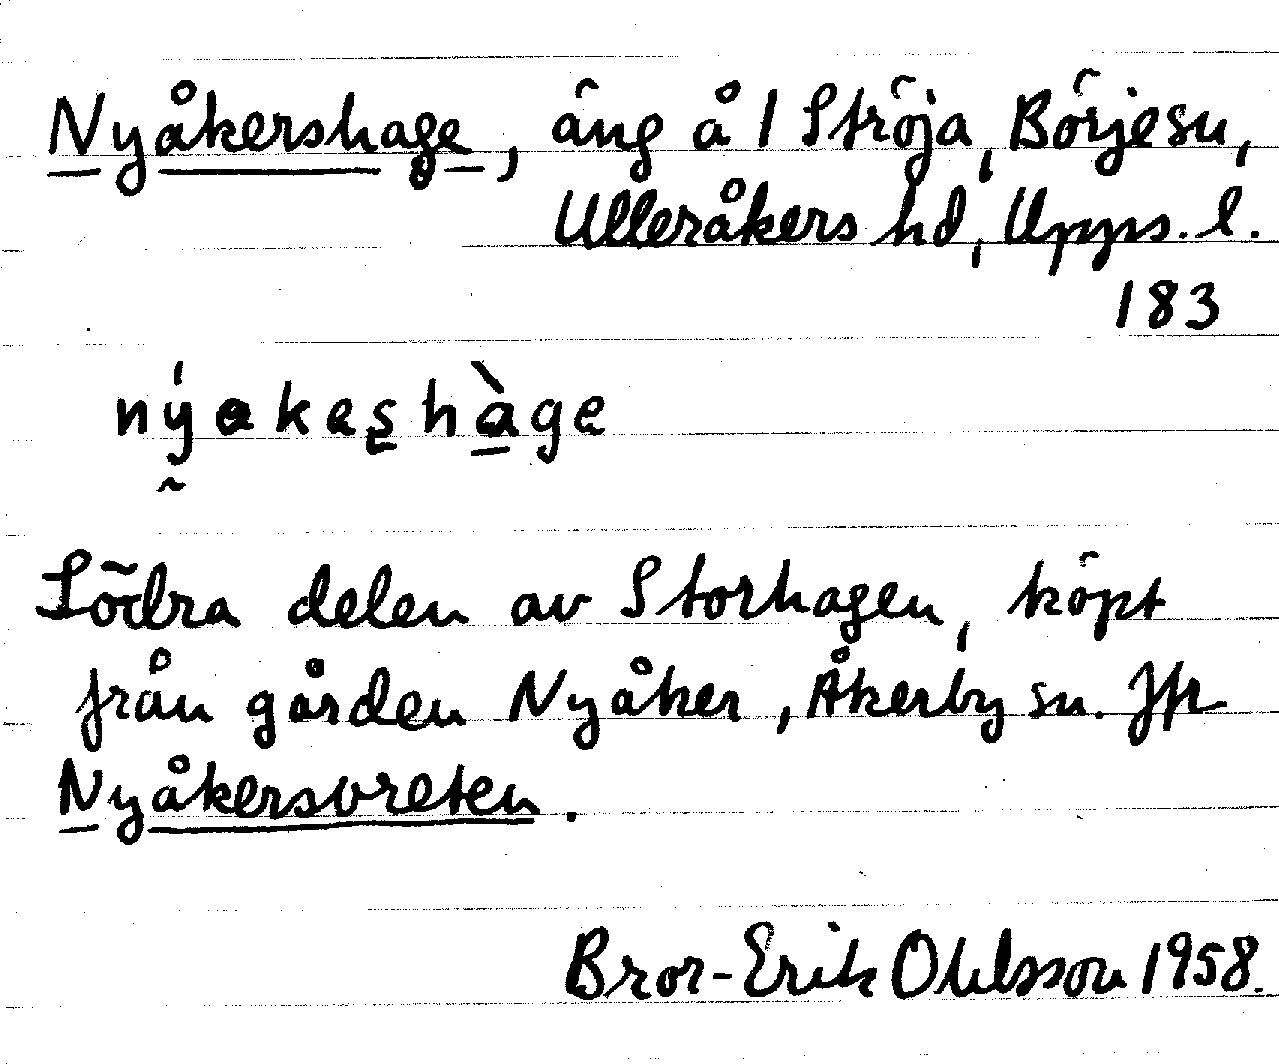 Nyåkershage, äng å 1 Ströja, Börje sn,
Ulleråkers hd, Upps. l.
183
nýakeshàge
Södra delen av Storhagen, köpt
från gården Nyåker, Åkerby sn. Jfr
Nyåkersvreten.
Bror-Erik Ohlsson 1958.